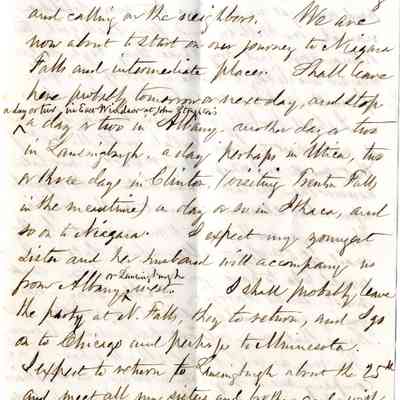 and calling on the neighbors. We are
now about to start on our journey to Niagara
Falls and intermediate places. Shall leave
here probly tomorrow or next day, and stop
a day or two, in East Windsor at John
a day or two in Albany another day or two
in Lansingburgh. a day perhaps in Utica, two
or three days in Clinton, (visiting Trenton Falls
in the meantime) a day or so in Ithaca, and
so on to Niagara. I expect my youngest
sister and her husband will accompany us
or Lansingburgh
from Albany west. I shall probably leave
the party at N. Falls, they to return, and I go
on to Chicago and perhaps to Minnesota.
I expect to return to Lansingburgh about the 25th
and meet all my sisters and